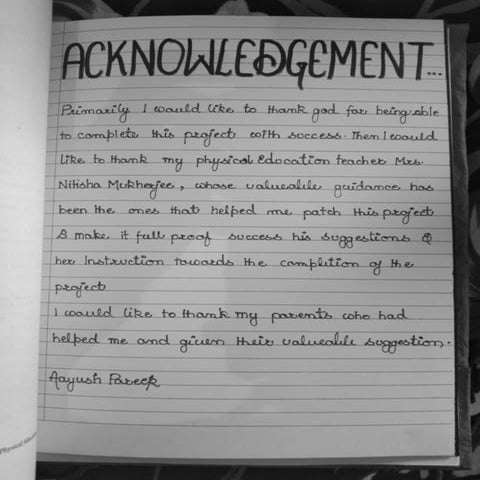 ACKNOWLEDGEMENT...
Primarily I would like to thank god for being able
to complete this project with success. Then I would
like to thank my physical Education teacher Mrs.
Nitisha Mukherjee, whose valueable guidance has
been the ones that helped me patch this project
& make it full proof success his suggestions &
her Instruction towards the completion of the
project
I would like to thank my parents who had
helped me and given their valueable suggestion.
Aayush Pareek
Physical